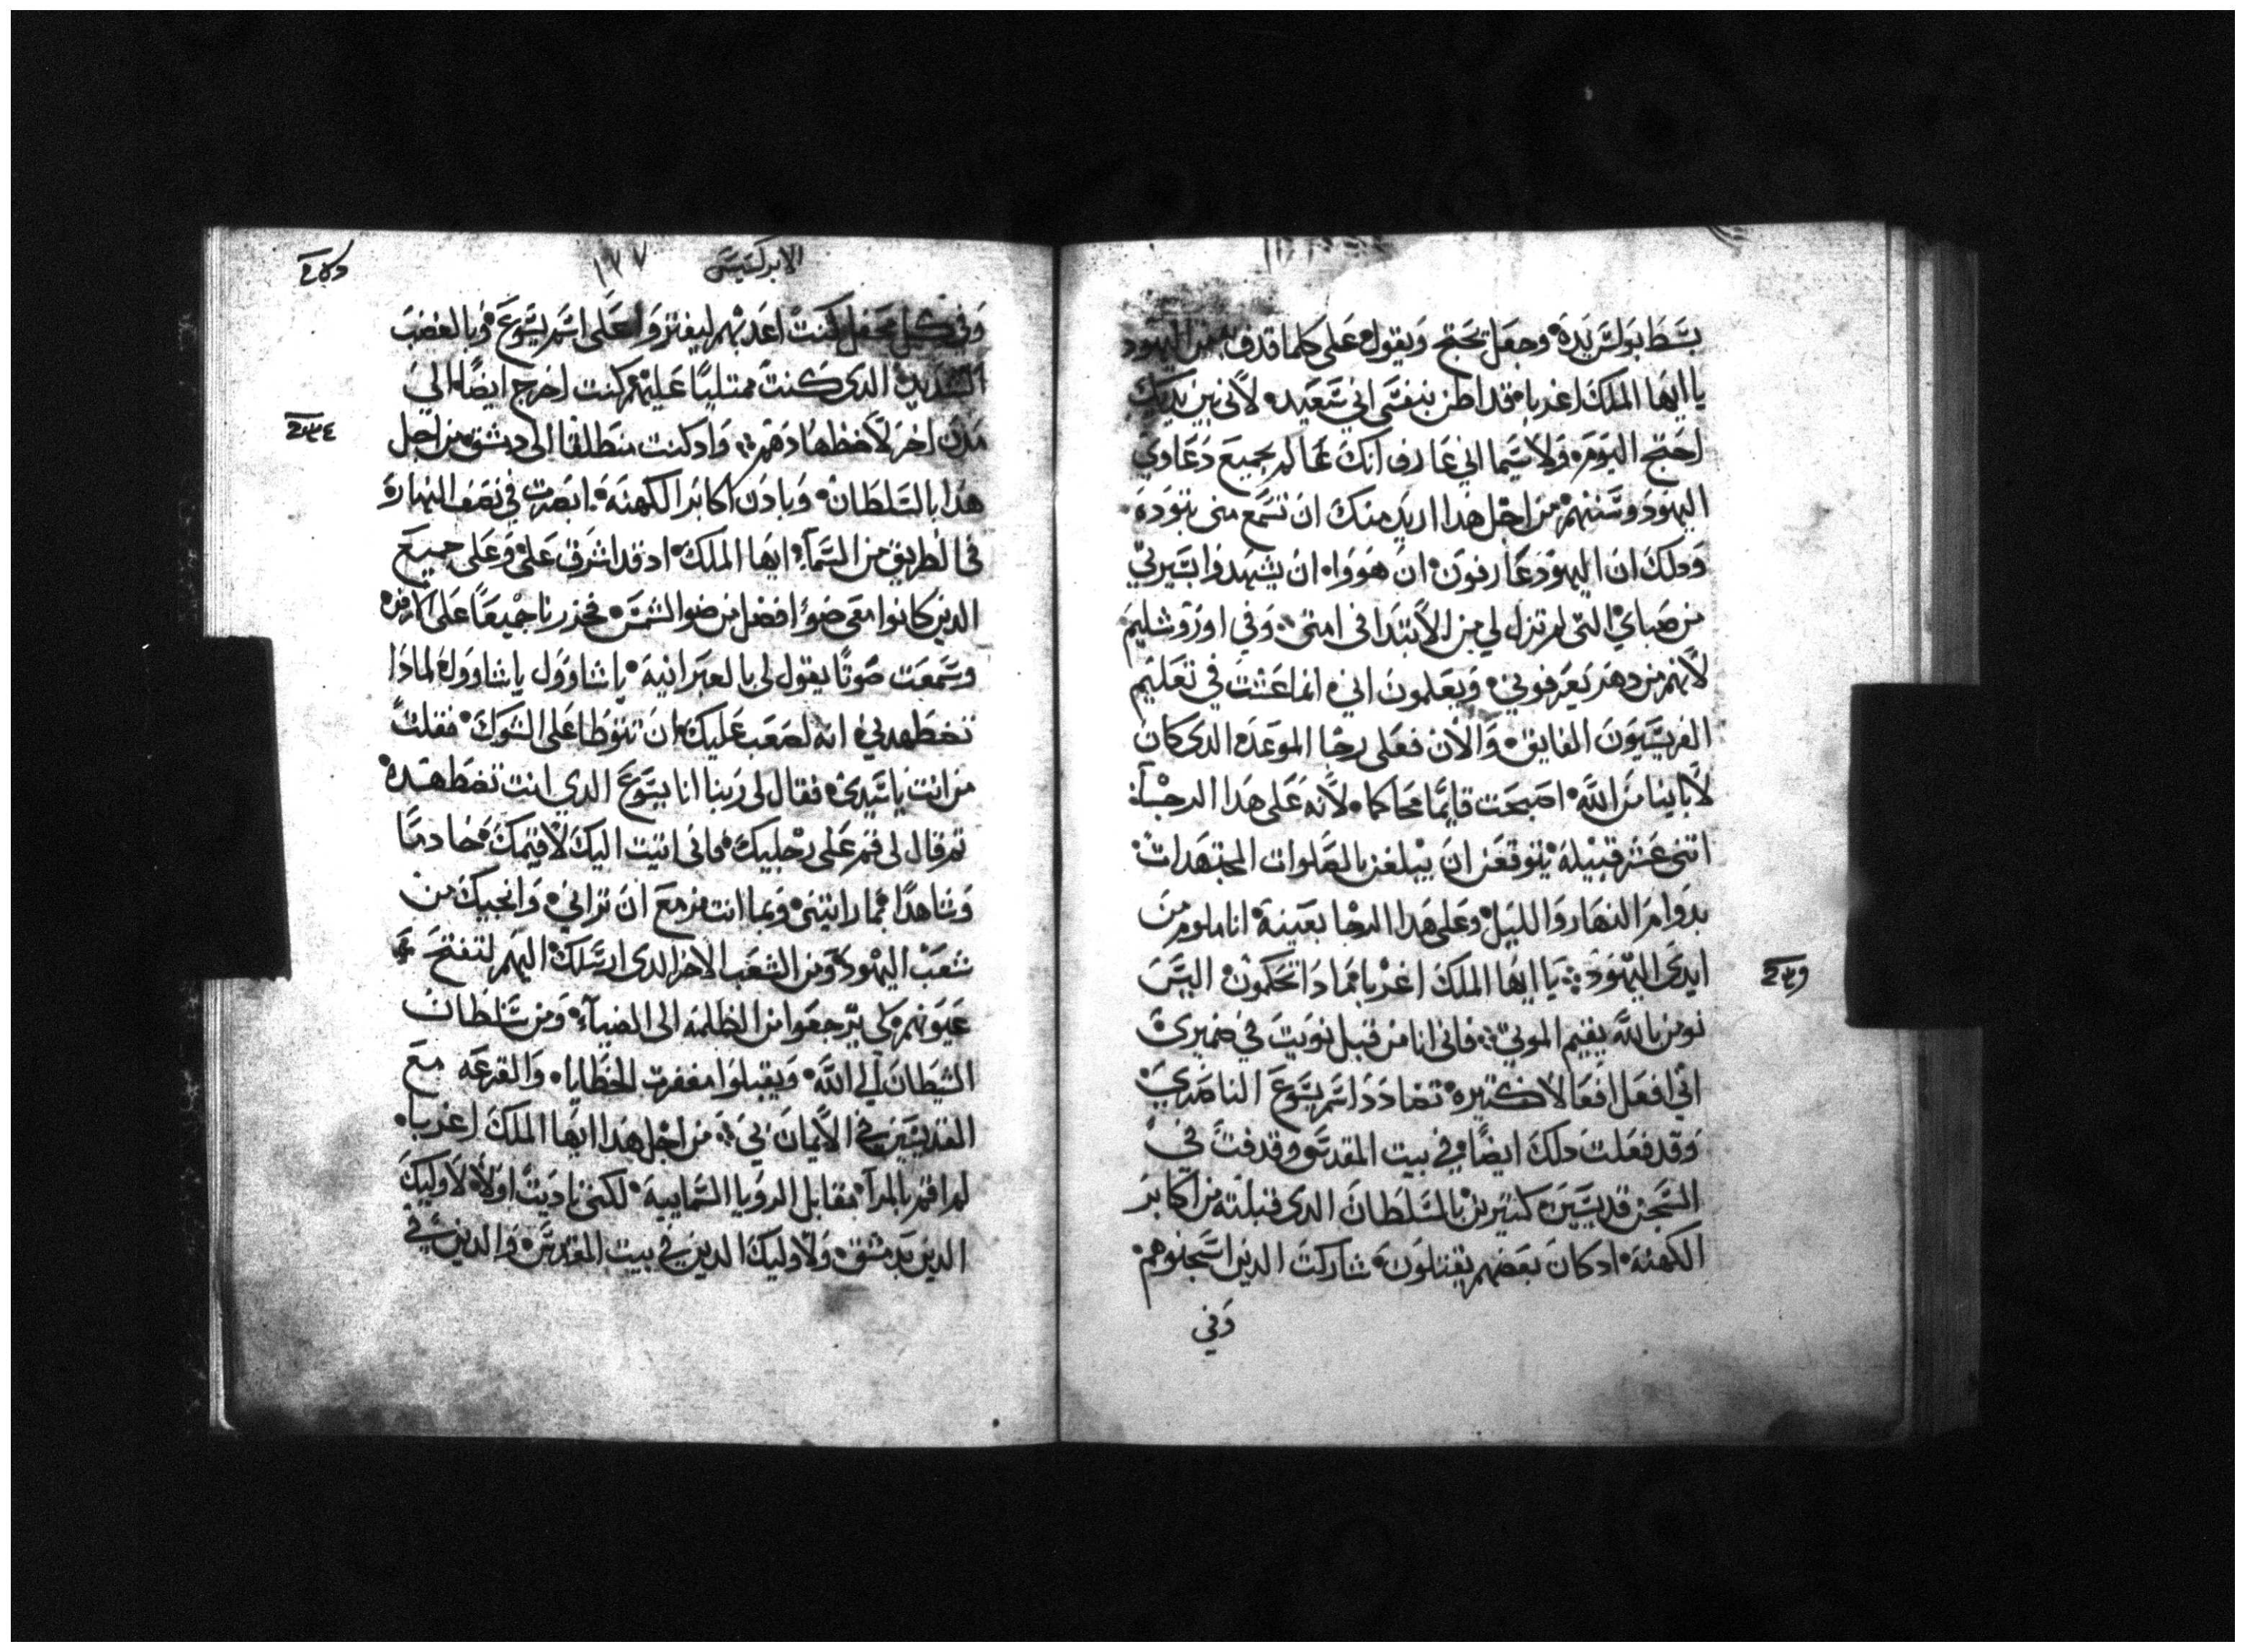 بسط بولس يده وجعل يحتج ويقول على كلما قدف من اليهود
يا ايها الملك اغربا قد اظن بنفسي اني سعيد لأني بين يديك
احتج اليوم ولا سيما اني عارف انك عالم بجميع دعاوي
اليهود وسننهم من اجل هدا اريد منك ان تسمع مني بتودة
ودلك ان اليهود عارفون ان هووا ان يشهدوا بسيرتي
من صباي التي لم تزل لي من الأبتدا في امتي وفي اوروشليم
لأنهم من دهر يعرفوني ويعلمون اني انما عشت في تعليم
الفريسيون الفايق والأن فعلى رجا الموعده الدي كان
لأباينا من الله اصبحت قايما محاكما لأنه على هدا الرجآ
اتني عشر قبيلة يتوقعن ان يبلغن بالصلوات المجتهدات
بدوام النهار والليل وعلى هدا الرجا بعينة انا ملوم من
ايدي اليهود يا ايها الملك اغربا فما دا تحكمون اليس
نومن بالله يقيم الموتي فاني انا من قبل نويت في ضميري
اني افعل افعالا كتيره تضادد اسم يسوع الناصري
وقد فعلت دلك ايضا في بيت المقدس وقدفت في
السجن قديسين كتيرين بالسلطان الدي قبلته من اكابر
الكهنة ادكان بعضهم يقتلون شاركت الدين اسجنوهم
وفي
الابركسيس ١٧٧
وفي كل محفل كنت اعدبهم ليفتروا على اسم يسوع وبالغضب
الشديد الدي كنت ممتليا عليهم كنت اخرج ايضا الي
مدن اخر لأضطهادهم وادكنت منطلقا الى دمشق من اجل
هدا بالسلطان وبادن اكابر الكهنة ابصرت في نصف النهار
في الطريق من السمآ ايها الملك ادقد اشرق علي وعلى جميع
الدين كانوا معي ضوًا افضل من ضو الشمس فخررنا جميعا على الارض
وسمعت صوتًا يقول لي بالعبرانية ياشاوول ياشاوول لمادا
تضطهدني انه لصعب عليك ان تتوطا على الشوك فقلت
من انت ياسيدي فقال لي ربنا انا يسوع الدي انت تضطهده
تم قال لي قم على رجليك فاني اتيت اليك لأقيمك خادمًا
وشاهدًا بما رايتني وبما انت مزمع ان تراني وانجيك من
شعب اليهود ومن الشعب الاخر الدي ارسلك اليهم لتفتح
عيونهم لكي يرجعوا من الظلمه الى الضيآء ومن سلطان
الشيطان الي الله ويقبلوا مغفرت الخطايا والقرعه مع
القديسين في الأيمان بي من اجل هدا ايها الملك اغربا
لم اقم بالمرآ مقابل الرويا السمايية لكني ناديت اولأ لأوليك
الدين بدمشق ولأوليك الدين في بيت المقدس والدين في